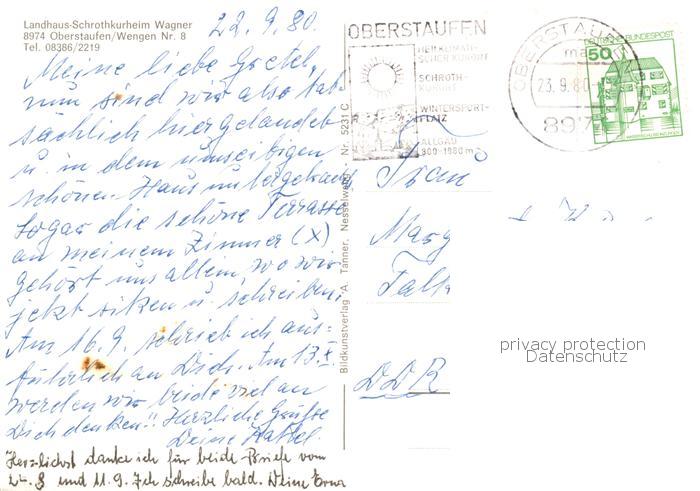 Landhaus-Schrothkurheim Wagner
8974 Oberstaufen/Wengen Nr. 8
Tel. 08386/2219
22.9.80.
Meine liebe Gretel,
nun sind wir also tat-
sächlich hier gelandet
u. in dem umseitigen
schönen Haus untergebracht
sogar die schöne Terrasse
an meinem Zimmer (X)
gehört uns allein, wo wir
jetzt sitzen u. schreiben.
Am 16.9. schrieb ich aus=
führlich an Dich. Am 13.X.
werden wir beide viel an
Dich denken!! Herzliche Grüße
Deine
Herzlichst danke ich für beide Briefe vom
und 11.9. Ich schreibe bald. Deine Erna
Bildkunstverlag A. Tanner, Nesselwang Nr. 5231 C
OBERSTAUFEN
HEILKLIMATI-
SCHER KURORT
SCHROTH-
KURORT
WINTERSPORT-
PLATZ
ALLGÄU
800-1800 m
OBERSTAUFEN
23.9.80
897
DEUTSCHE BUNDESPOST
50
Marg
Falk
DDR
privacy protection
Datenschutz